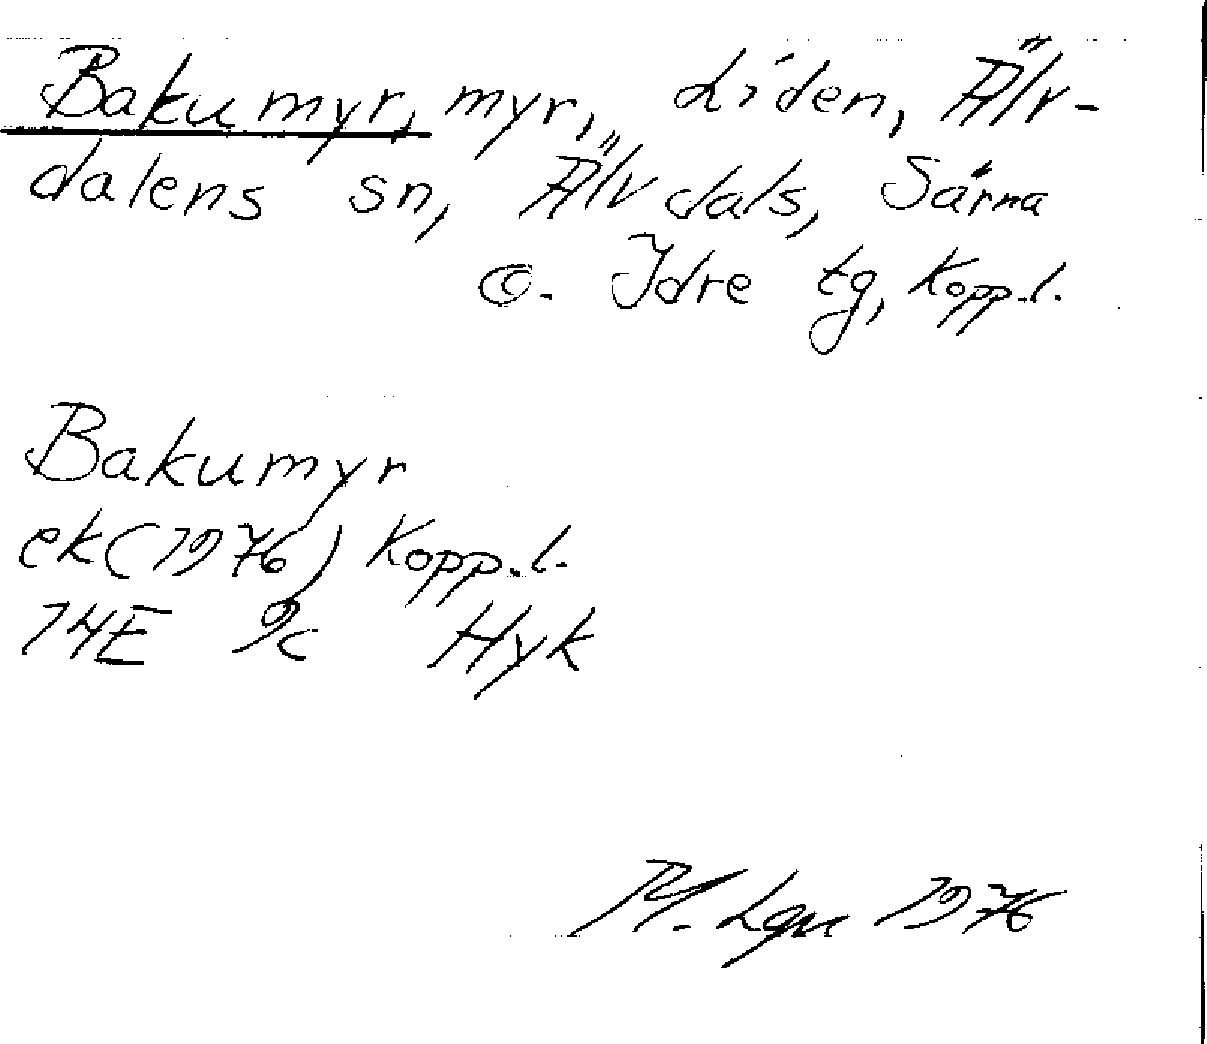 Bakumyr, myr, Liden, Älv-
dalens sn, Älvdals, Särna
o. Idre tg, Kopp.l.
Bakumyr
ek (1976) Kopp.l.
14E 9c Hyk
M. Lgn 1976